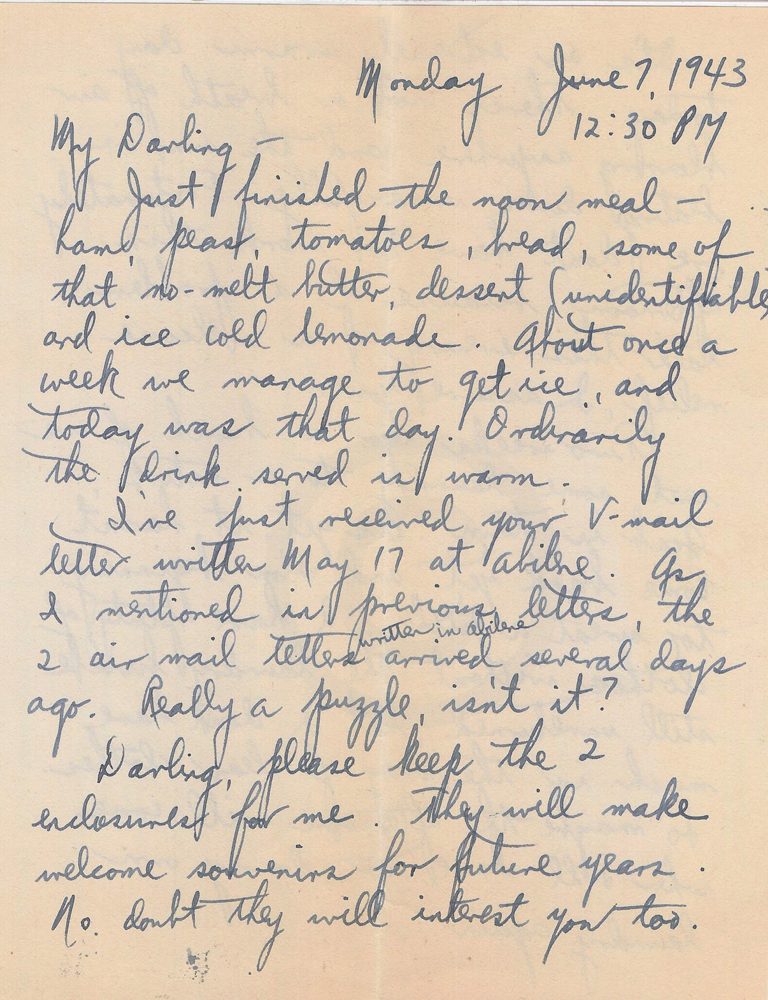 Monday June 7, 1943
12:30 PM
My Darling —
Just finished the noon meal —
ham, peas, tomatoes, bread, some of
that no-melt butter, dessert (unidentifiable)
and ice cold lemonade. About once a
week we manage to get ice, and
today was that day. Ordinarily
the drink served is warm.
I've just received your V-mail
letter written May 17 at Abilene. As
I mentioned in previous letters, the
written in Abilene
2 air mail letters arrived several days
ago. Really a puzzle, isn't it?
Darling, please keep the 2
enclosures for me. They will make
welcome souvenirs for future years.
No doubt they will interest you too.